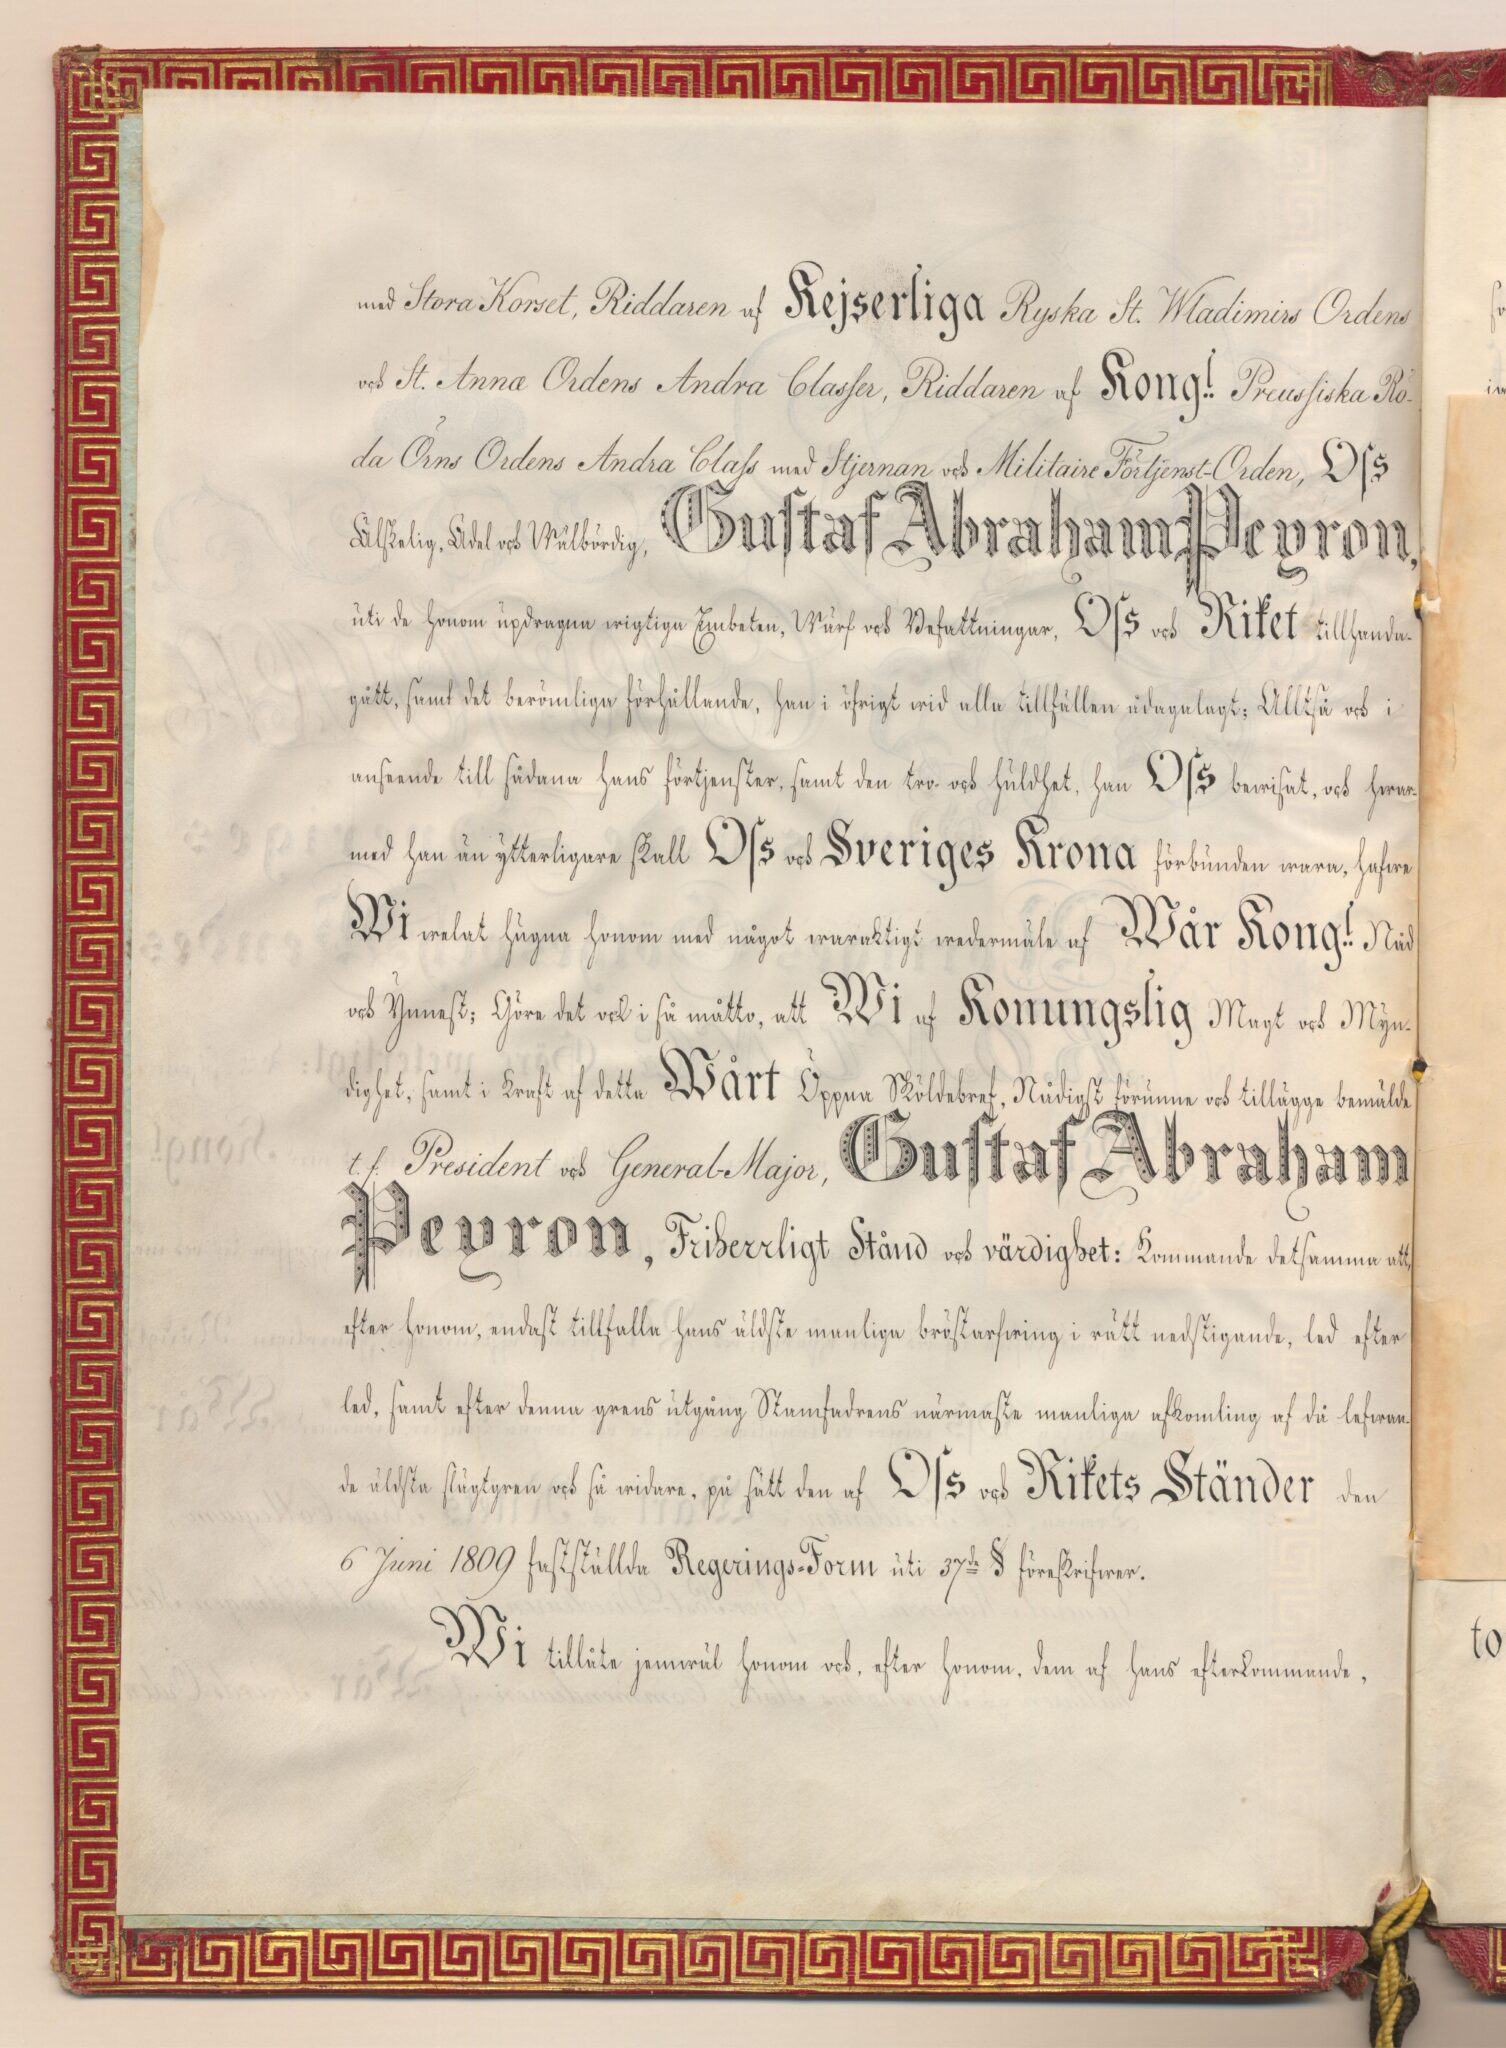 med Stora Korset, Riddaren af Kejserliga Ryska St. Wladimirs Ordens
och St. Annæ Ordens Andra Classer, Riddaren af Kongl. Preussiska Rö-
da Örns Ordens Andra Class med Stjernan och Militaire Förtjenst-Orden, Oss
Älskelig, Ädel och Wälbördig, Gustaf Abraham Peyron,
uti de honom updragna wigtiga Embeten, Wärf och Befattningar, Oss och Riket tillhanda-
gått, samt det berömliga förhållande, han i öfrigt wid alla tillfällen ådagalagt; Alltså och i
anseende till sådana hans förtjenster, samt den tro- och huldhet, han Oss bewisat, och hwar-
med han än ytterligare skall Oss och Sveriges Krona förbunden wara, hafwe
Wi welat hugna honom med något waraktigt wedermäle af Wår Kongl. Nåd
och Ynnest; Göre det ock i så måtto, att Wi af Konungslig Magt och Myn-
dighet, samt i Kraft af detta Wårt Öppna Sköldebref, Nådigst förunne och tillägge bemälde
t. f. President och General-Major, Gustaf Abraham
Peyron, Friherrligt Stånd och värdighet: Kommande detsamma att,
efter honom, endast tillfalla hans äldste manliga bröstarfwing i rätt nedstigande, led efter
led, samt efter denna grens utgång Stamfadrens närmaste manliga afkomling af då lefwan-
de äldsta slägtgren och så widare, på sätt den af Oss och Rikets Ständer den
6 Juni 1809 fastställda Regerings-Form uti 37de § föreskrifwer.
Wi tillåte jemwäl honom och, efter honom, dem af hans efterkommande,
to